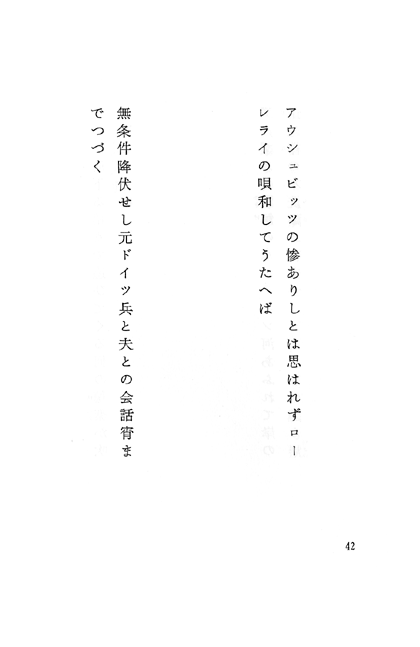 アウシュビッツの惨ありしとは思はれずロー
レライの唄和してうたへば
無条件降伏せし元ドイツ兵と夫との会話宵ま
でつづく
42